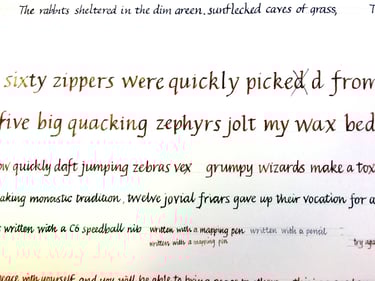 The rabbits sheltered in the dim green, sunflecked caves of grass,
sixty zippers were quickly picked d from
five big quacking zephyrs jolt my wax bed
ow quickly daft jumping zebras vex grumpy wizards make a tox
aking monastic tradition, twelve jovial friars gave up their vocation for a
written with a C6 speedball nib written with a mapping pen written with a pencil
written with a mapping pen try aga
peace with yourself and you will be able to bring peace to others